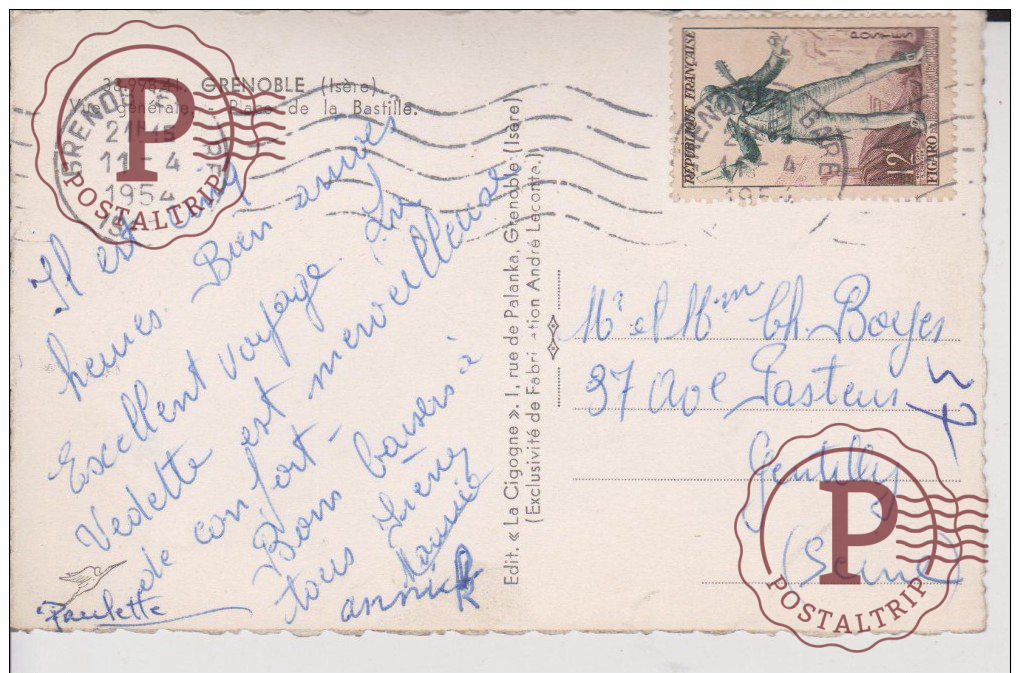 38.979.41. GRENOBLE (Isère)
Vue générale. - Place de la Bastille.
GRENOBLE GARE
21H15
11-4
1954
POSTALTRIP
Il est cinq
heures. Bien arrivés
Excellent voyage. La
Vedette est merveilleuse
de confort -
Bons baisers à
tous Irène
Maurice
annick
Paulette
Edit. « La Cigogne ». 1, rue de Palanka, Grenoble (Isère)
(Exclusivité de Fabrication André Leconte.)
REPUBLIQUE FRANÇAISE
POSTES
12F
FIGARO
GRENOBLE GARE
1954
Mr et Mme Ch. Boyes
37 Ave Pasteur
37
Gentilly
(Seine)
POSTALTRIP